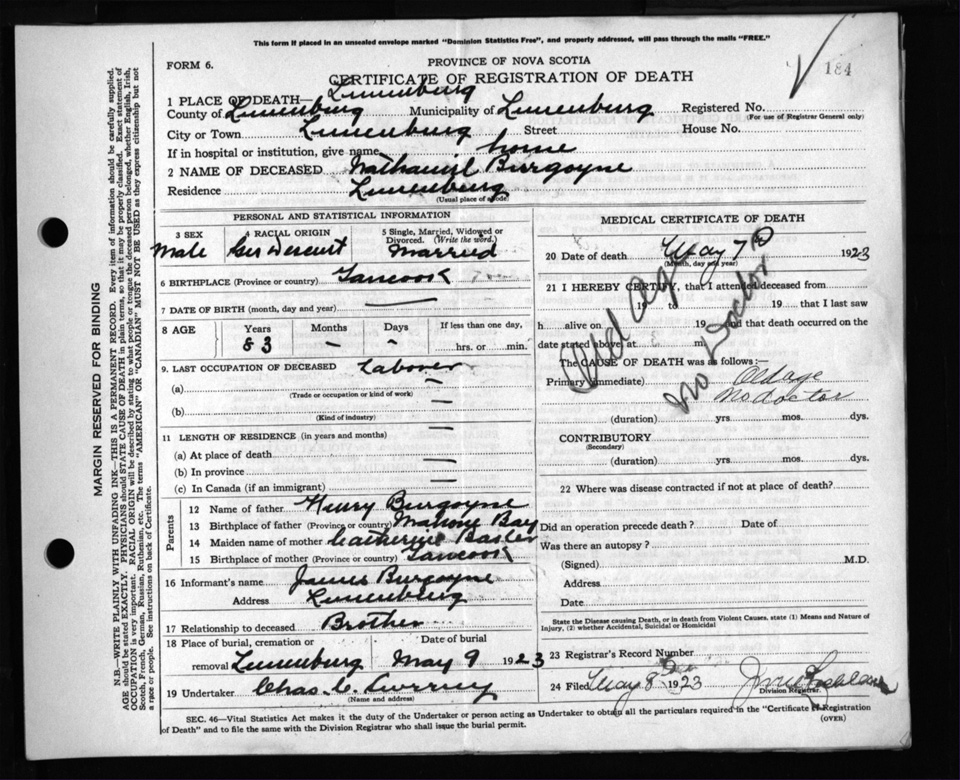 This form if placed in an unsealed envelope marked "Dominion Statistics Free", and properly addressed, will pass through the mails "FREE."
184
FORM 6.
PROVINCE OF NOVA SCOTIA
CERTIFICATE OF REGISTRATION OF DEATH
1 PLACE OF DEATH— Lunenburg
County of Lunenburg Municipality of Lunenburg Registered No.
(For use of Registrar General only)
City or Town Lunenburg Street House No.
If in hospital or institution, give name home
2 NAME OF DECEASED Nathaniel Burgoyne
Residence Lunenburg
(Usual place of abode)
PERSONAL AND STATISTICAL INFORMATION
3 SEX 4 RACIAL ORIGIN 5 Single, Married, Widowed or Divorced. (Write the word.)
Male Ger Descent Married
6 BIRTHPLACE (Province or country) Tancook
7 DATE OF BIRTH (month, day and year)
8 AGE Years Months Days If less than one day,
83 — — hrs. or min.
9. LAST OCCUPATION OF DECEASED Laborer
(a) —
(Trade or occupation or kind of work)
(b) —
(Kind of industry)
11 LENGTH OF RESIDENCE (in years and months) —
(a) At place of death —
(b) In province —
(c) In Canada (if an immigrant) —
Parents
12 Name of father Henry Burgoyne
13 Birthplace of father (Province or country) Mahone Bay
14 Maiden name of mother Catherine Baster
15 Birthplace of mother (Province or country) Tancook
16 Informant's name James Burgoyne
Address Lunenburg
17 Relationship to deceased Brother
18 Place of burial, cremation or Date of burial
removal Lunenburg May 9 1923
19 Undertaker Chas. C.
(Name and address)
MEDICAL CERTIFICATE OF DEATH
20 Date of death May 7 1923
(Month, day and year)
21 I HEREBY CERTIFY, that I attended deceased from
19 to 19 that I last saw
h alive on 19 and that death occurred on the
date stated above, at m.
The CAUSE OF DEATH was as follows:—
Primary (immediate) Old age
No doctor
Old Age
No Doctor
(duration) yrs. mos. dys.
CONTRIBUTORY
(Secondary)
(duration) yrs. mos. dys.
22 Where was disease contracted if not at place of death?
Did an operation precede death? Date of
Was there an autopsy?
(Signed) M.D.
Address
Date
State the Disease causing Death, or in death from Violent Causes, state (1) Means and Nature of
Injury, (2) whether Accidental, Suicidal or Homicidal
23 Registrar's Record Number
24 Filed May 8 1923
Division Registrar.
SEC. 46—Vital Statistics Act makes it the duty of the Undertaker or person acting as Undertaker to obtain all the particulars required in the "Certificate of Registration
of Death" and to file the same with the Division Registrar who shall issue the burial permit.
(OVER)
MARGIN RESERVED FOR BINDING
N.B.—WRITE PLAINLY WITH UNFADING INK—THIS IS A PERMANENT RECORD. Every item of information should be carefully supplied.
AGE should be stated EXACTLY. PHYSICIANS should STATE CAUSE OF DEATH in plain terms, so that it may be properly classified. Exact statement of
OCCUPATION is very important. RACIAL ORIGIN will be described by stating to what people or tongue the deceased person belonged, whether English, Irish,
Scotch, French, German, Russian, Ruthenian, etc. The terms "AMERICAN" OR "CANADIAN" MUST NOT BE USED as they express citizenship but not
a race or people. See instructions on back of Certificate.